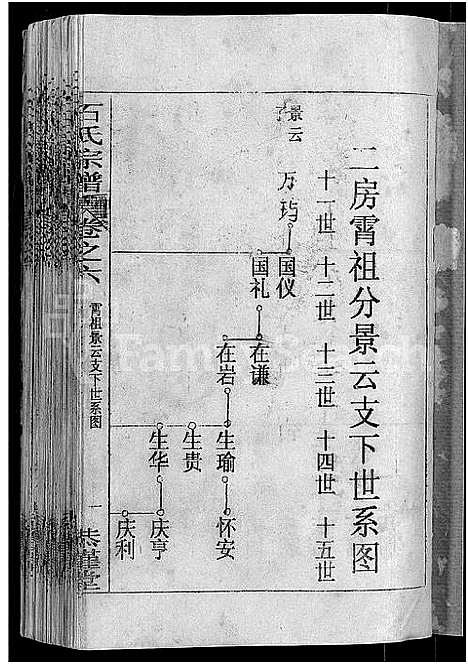 二房霄祖分景云支下世系图
十一世 十二世 十三世 十四世 十五世
景云子
万玙
国仪
国礼
在谦
在岩
生瑜
生贵
生华
怀安
庆亨
庆利
石氏宗谱
卷之六
霄祖景云支下世系图
一
恭谨堂
FamilySearch